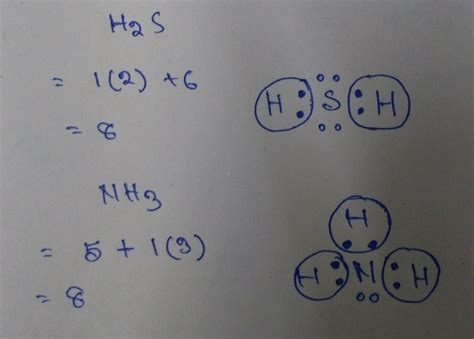 H2S
= 1(2) + 6
H S H
= 8
NH3
H
= 5 + 1(3)
H N H
= 8